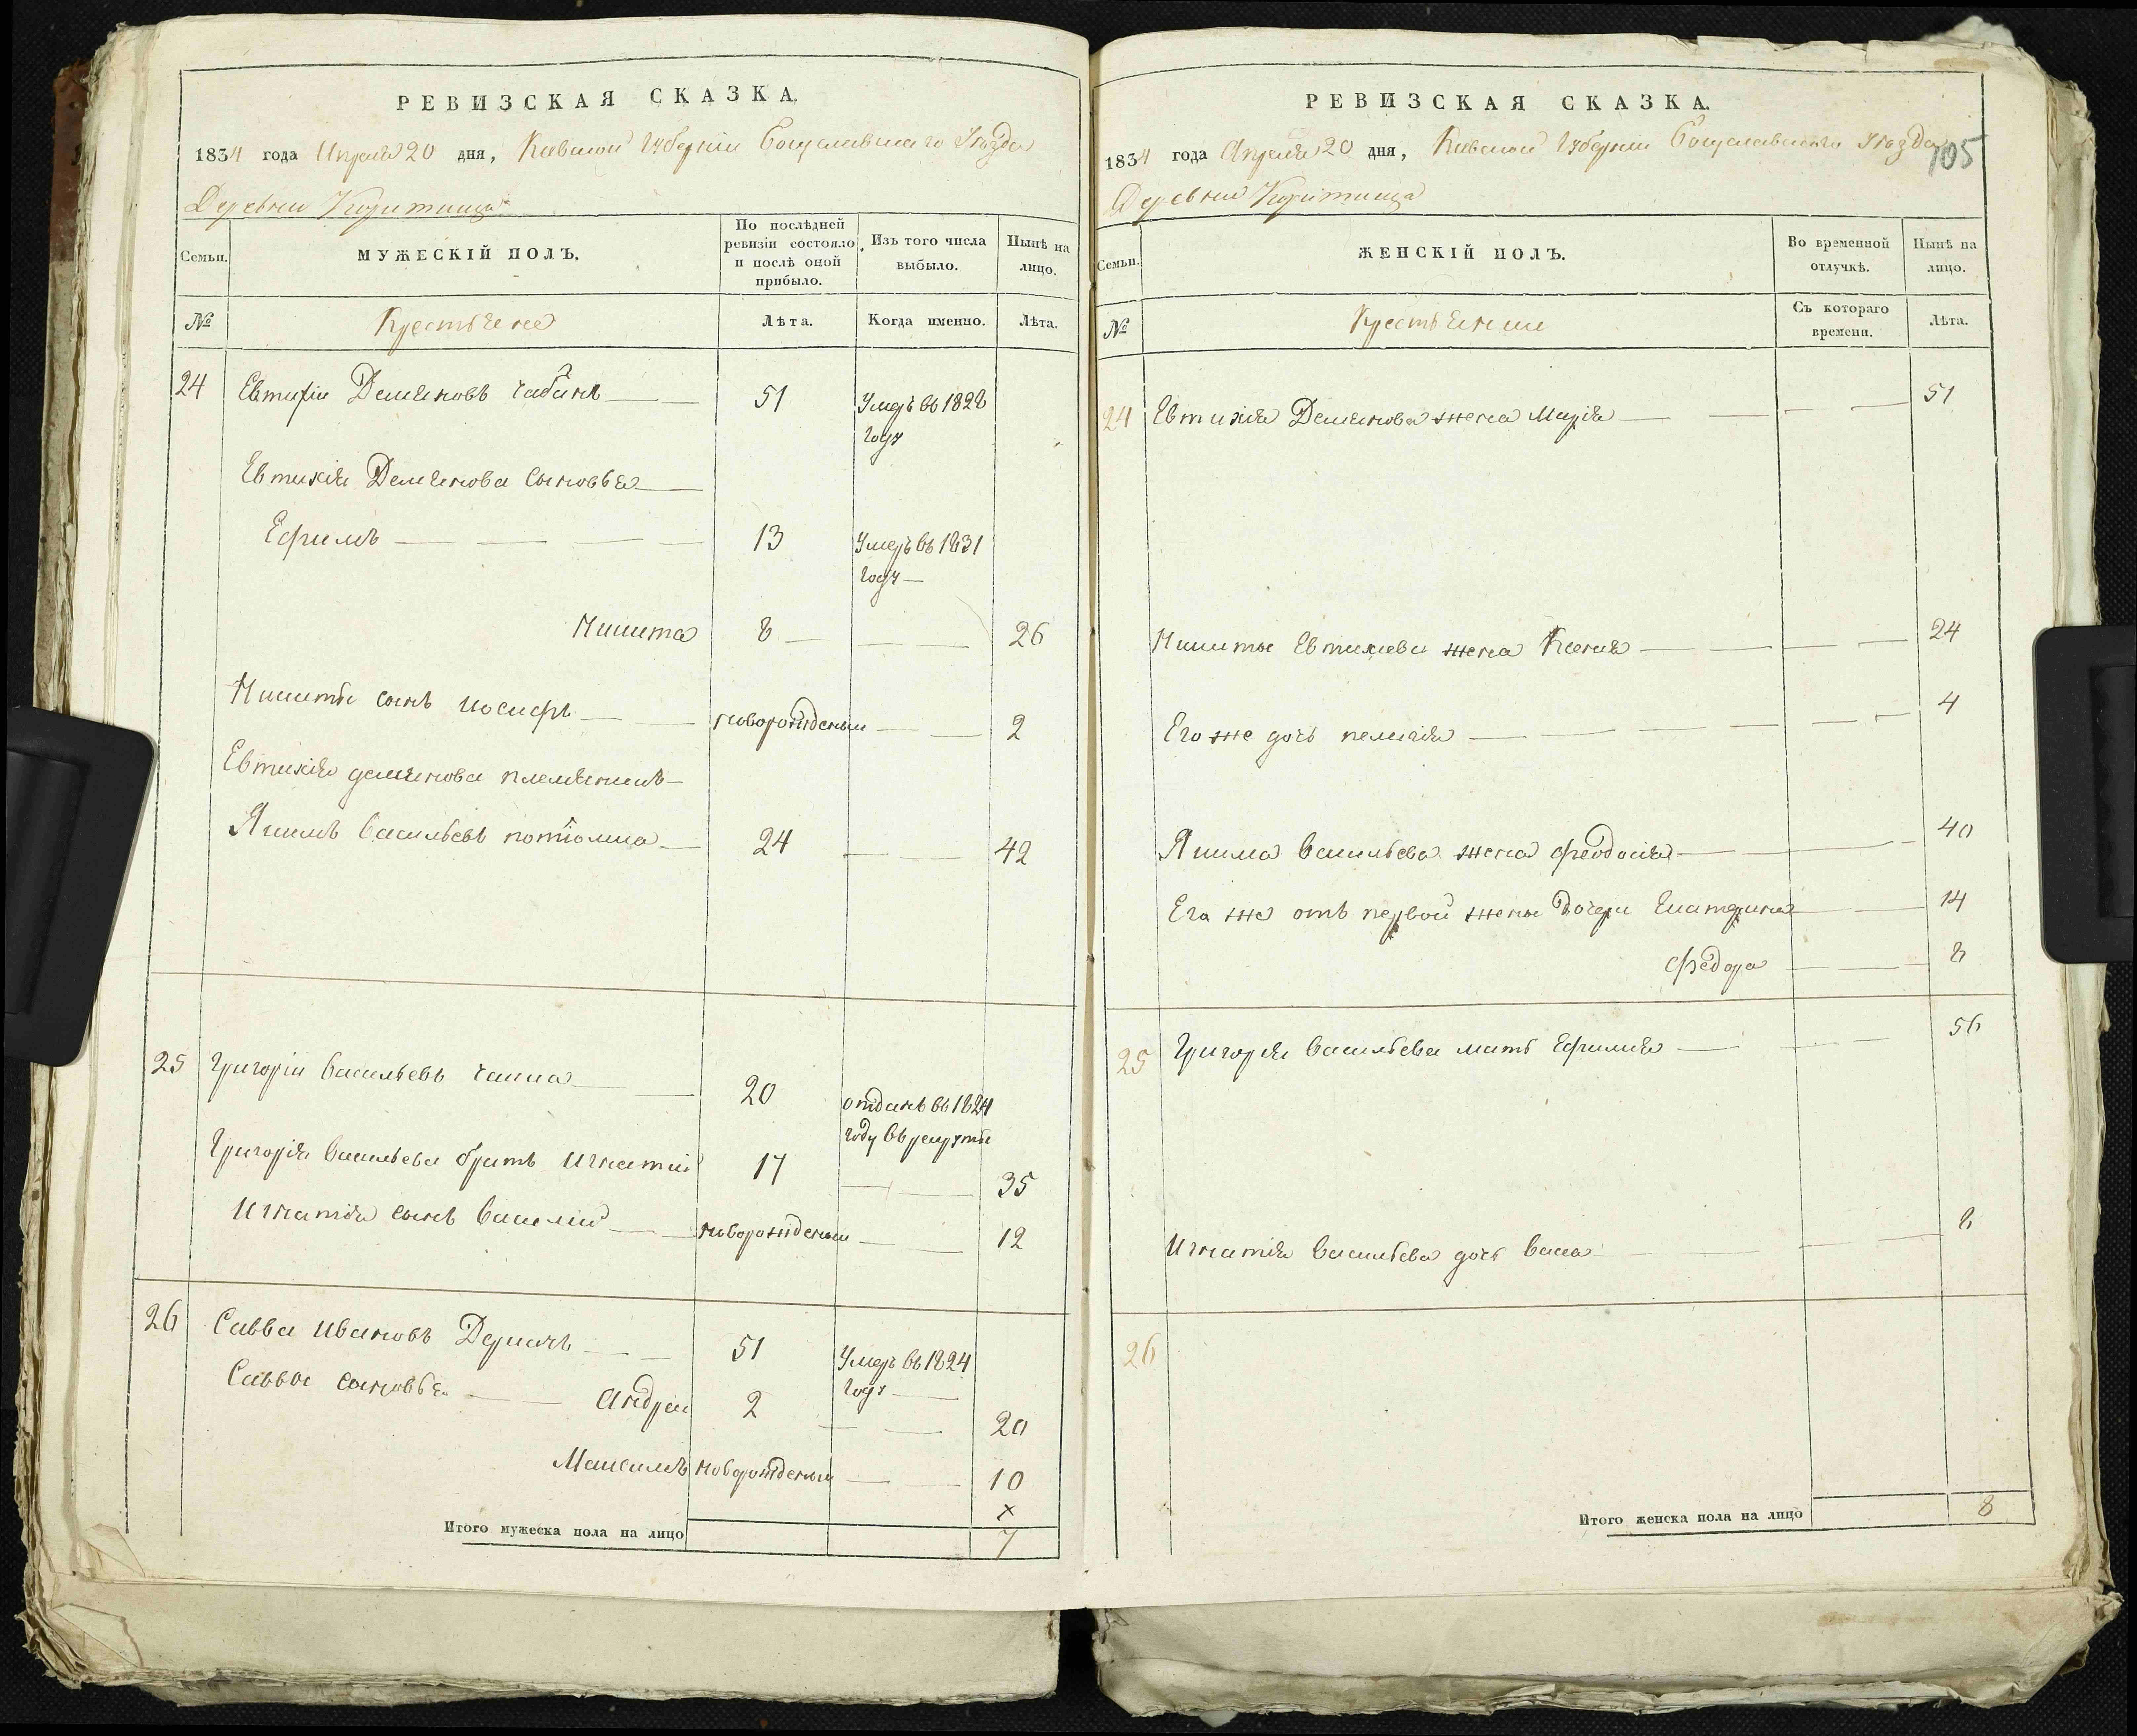 РЕВИЗСКАЯ СКАЗКА.
1834 года Апреля 20 дня, Киевской Губернии Богуславскаго Уѣзда
Деревни Коритища
Семьи.
МУЖЕСКІЙ ПОЛЪ.
По послѣдней ревизіи состояло и послѣ оной прибыло.
Изъ того числа выбыло.
Нынѣ на лицо.
№
Крестьяне
Лѣта.
Когда именно.
Лѣта.
24 Евтихіи Демяновъ Чабанъ 51 Умеръ въ 1828
году
Евтихія Демянова сыновья
Ефимъ 13 Умеръ въ 1831
году
Никита 8 26
Никиты сынъ Иосифъ новорожденыи 2
Евтихія демянова племяникъ
Якимъ Васильевъ 24 42
25 Григоріи Васильевъ 20 отданъ въ 1824
году въ рекруты
Григорія Васильева братъ Игнатіи 17 35
Игнатія сынъ Василіи новорожденыи 12
26 Савва Ивановъ 51 Умеръ въ 1824
году
Саввы сыновья Андреи 2 20
Максимъ новорожденыи 10
х
Итого мужеска пола на лицо 7
РЕВИЗСКАЯ СКАЗКА.
105
1834 года Апреля 20 дня, Киевской Губернии Богуславскаго Уѣзда
Деревни Коритища
Семьи.
ЖЕНСКІЙ ПОЛЪ.
Во временной отлучкѣ.
Нынѣ на лицо.
№
Крестьянки
Съ котораго времени.
Лѣта.
24 Евтихія Демянова жена Марія 51
Никиты Евтихиева жена Ксенія 24
Его же дочь пелагія 4
Якима Васильева жена феодосія 40
Его же отъ первой жены дочери Екатерина 14
Федора 8
25 Григорія Васильева мать Ефимія 56
Игнатія Васильева дочь Васа 8
26
Итого женска пола на лицо 8